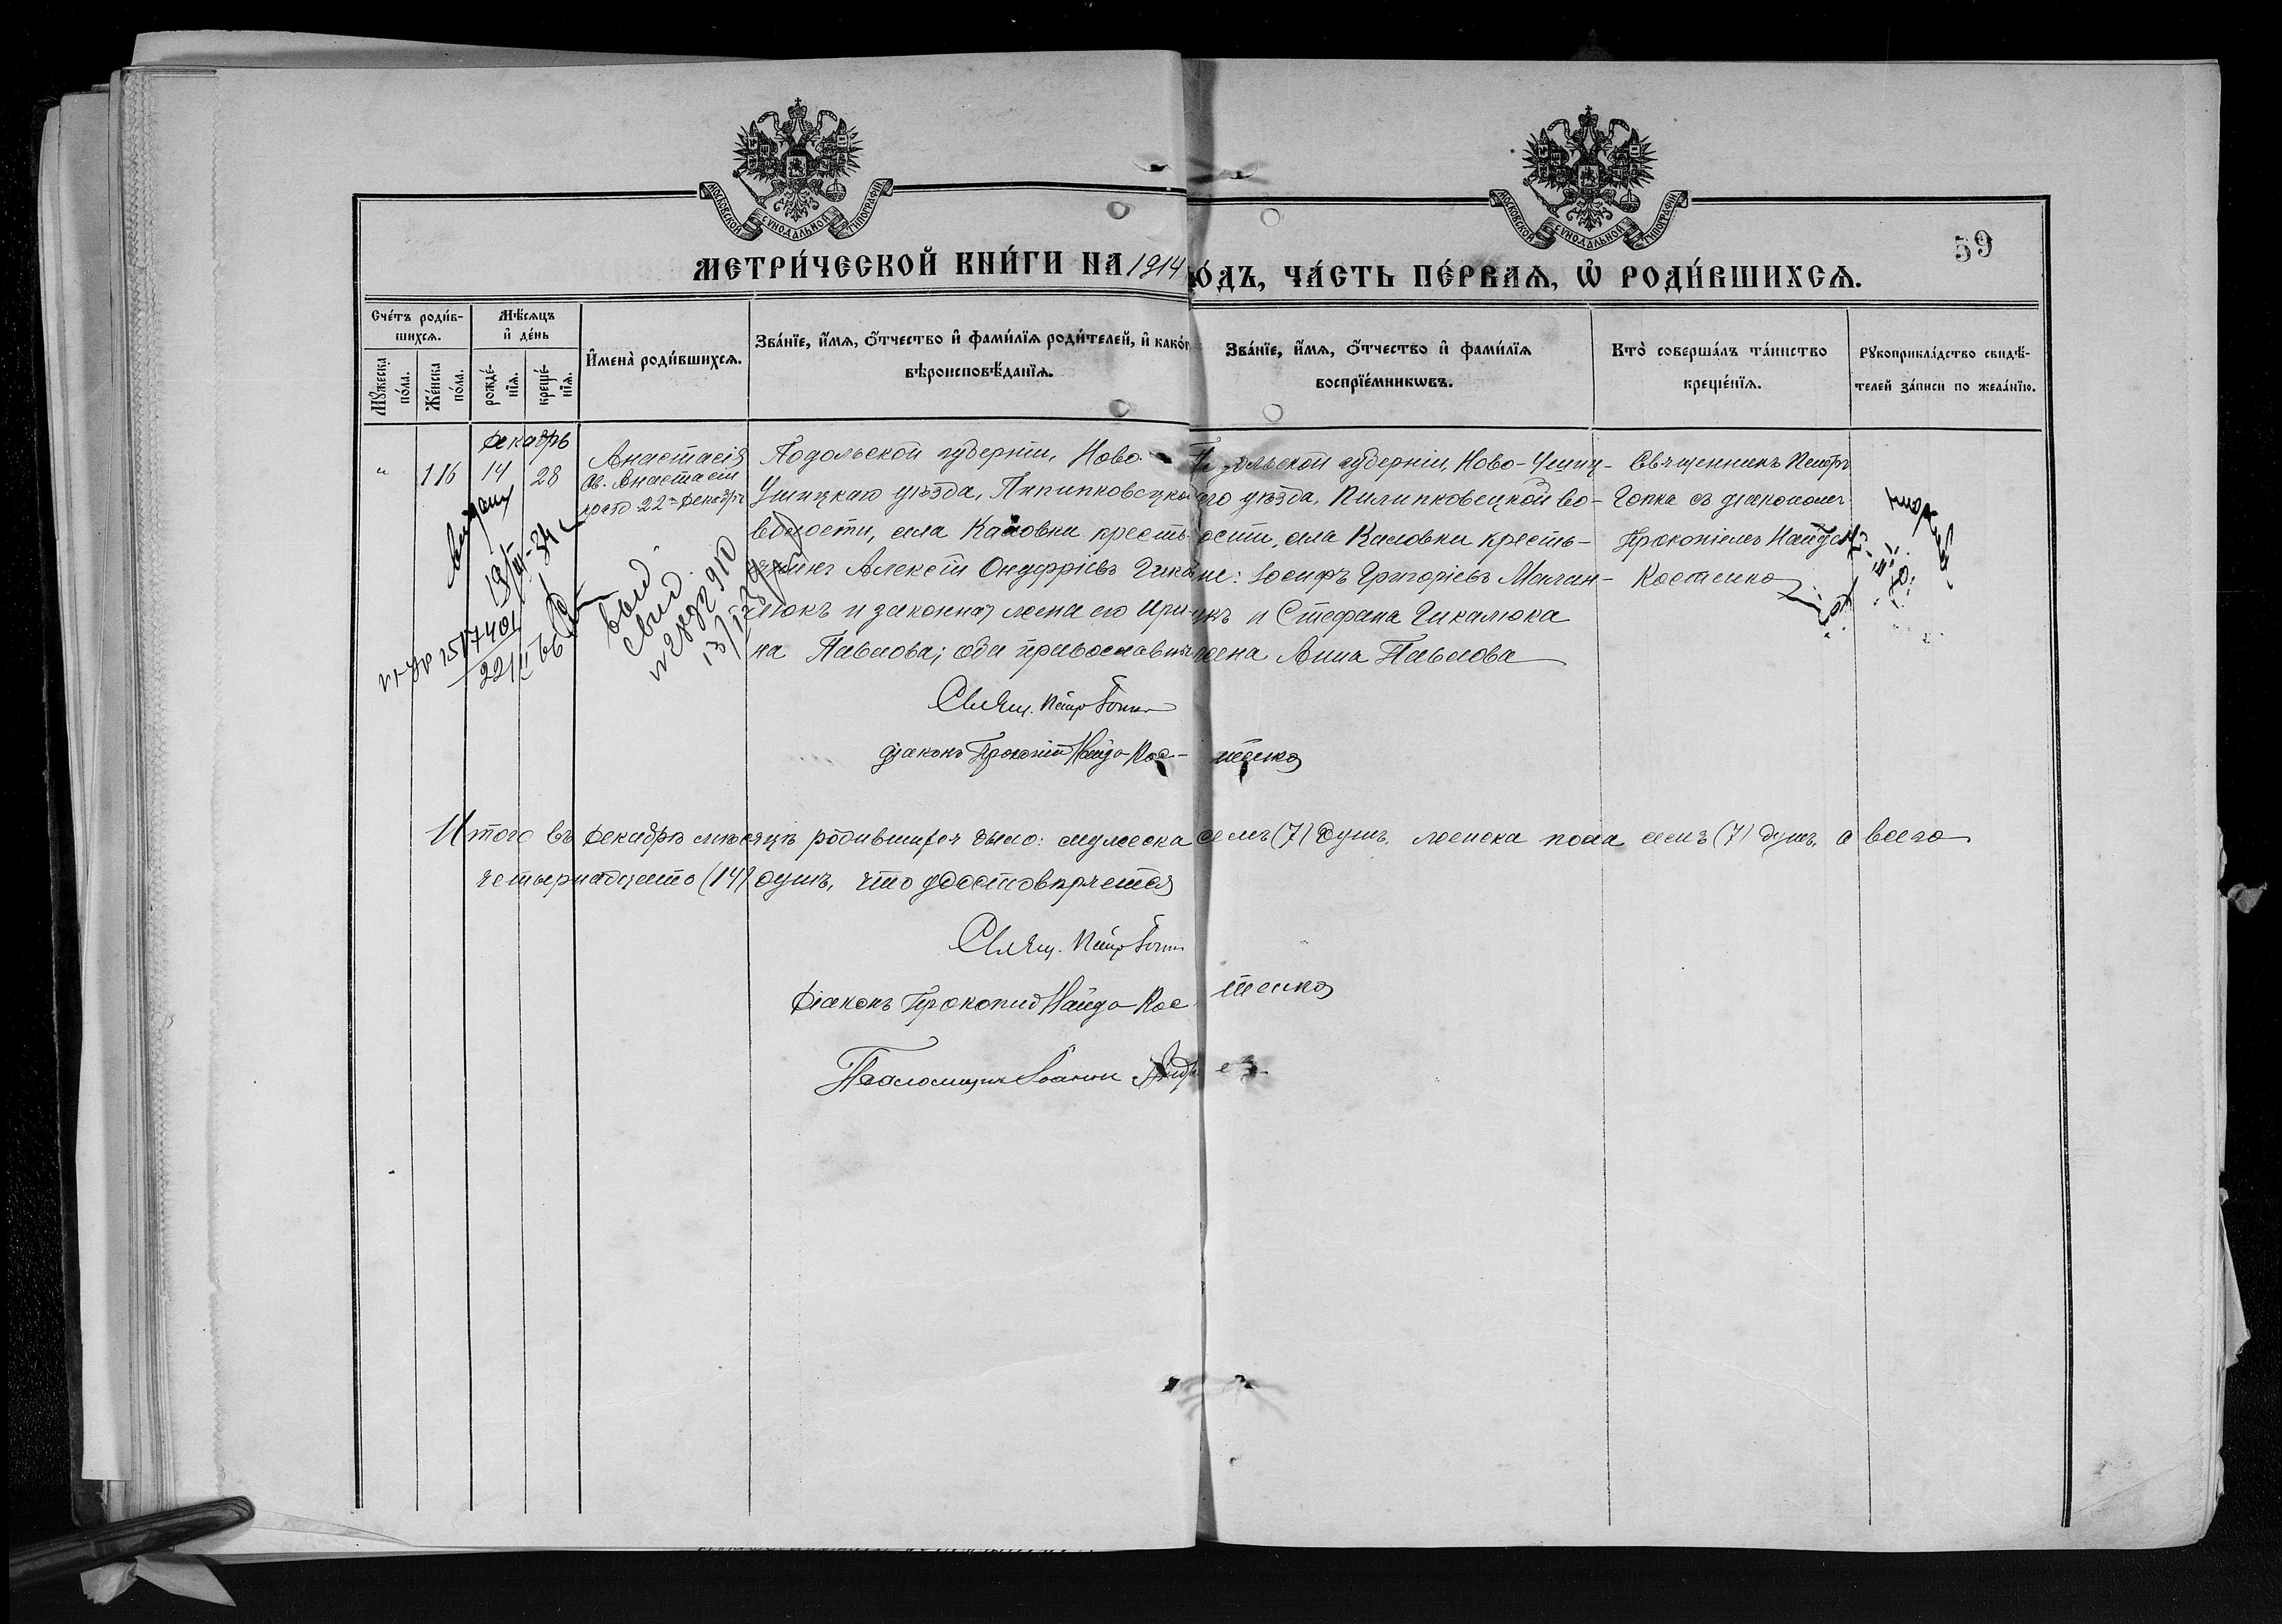 МОСКОВСКОЙ СѴНОДАЛЬНОЙ ТИПОГРАФІИ
МОСКОВСКОЙ СѴНОДАЛЬНОЙ ТИПОГРАФІИ
59
МЕТРИ́ЧЕСКОЙ КНИ́ГИ НА 1914 ГО́ДЪ, ЧА́СТЬ ПЕ́РВАѦ, Ѡ҆ РОДИ́ВШИХСѦ.
Сче́тъ роди́в-
шихсѧ.
Мꙋ́жеска по́ла.
Же́нска по́ла.
Мѣ́сѧцъ
и҆ де́нь
рожде́-
нїѧ.
креще́-
нїѧ.
И҆мена̀ роди́вшихсѧ.
Зва́нїе, и҆́мѧ, ѻ҆́тчество и҆ фами́лїѧ роди́телей, и҆ како́г
вѣроисповѣ́данїѧ.
Зва́нїе, и҆́мѧ, ѻ҆́тчество и҆ фами́лїѧ
воспрїе́мникѡвъ.
Кто̀ соверша́лъ та́инство
креще́нїѧ.
Рꙋкоприкла́дство свидѣ́-
телей за́писи по жела́нїю.
Декабрь
" 116 14 28
Анастасія
св. Анастасіи
22го Декабря
Подольской губерніи, Ново-
Ушицкаго уѣзда, Пилипковецкой
волости, села Каловки кресть-
янинъ Алексѣй Онуфріевъ Чика-
люкъ и законная жена его Ири-
на Павлова; оба православные
Подольской губерніи, Ново-Ушиц-
каго уѣзда, Пилипковецкой во-
лости, села Каловки кресть-
не: Іосифъ Григорієвъ
и Стефана Чикалюка
жена Анна Павлова
Священникъ Петръ
Гопка съ діакономъ
Прокопіемъ Найдо-
Костенко
выдану
19/III-34
17401
22/I 66
выд.
свид.
Свящ. Петр Гопка
діаконъ Прокопій Найдо-Костенко
Итого въ Декабрѣ мѣсяцѣ родившихся было: мужеска семь (7) душъ, женска пола семь (7) душъ, а всего
четырнадцать (14) душъ, что удостовѣряется
Свящ. Петр Гопка
Діаконъ Прокопій Найдо-Костенко
Псаломщик Іоаннъ